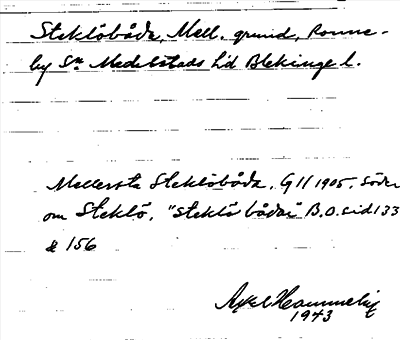 Steklöbåda, Mell. grund, Ronne-
by Sn Medelstads hd Blekinge l.
Mellersta Steklöbåda, GII 1905. Söder
om Steklö. "Steklö bådar" B.O. sid 133
& 156
Axel
1943